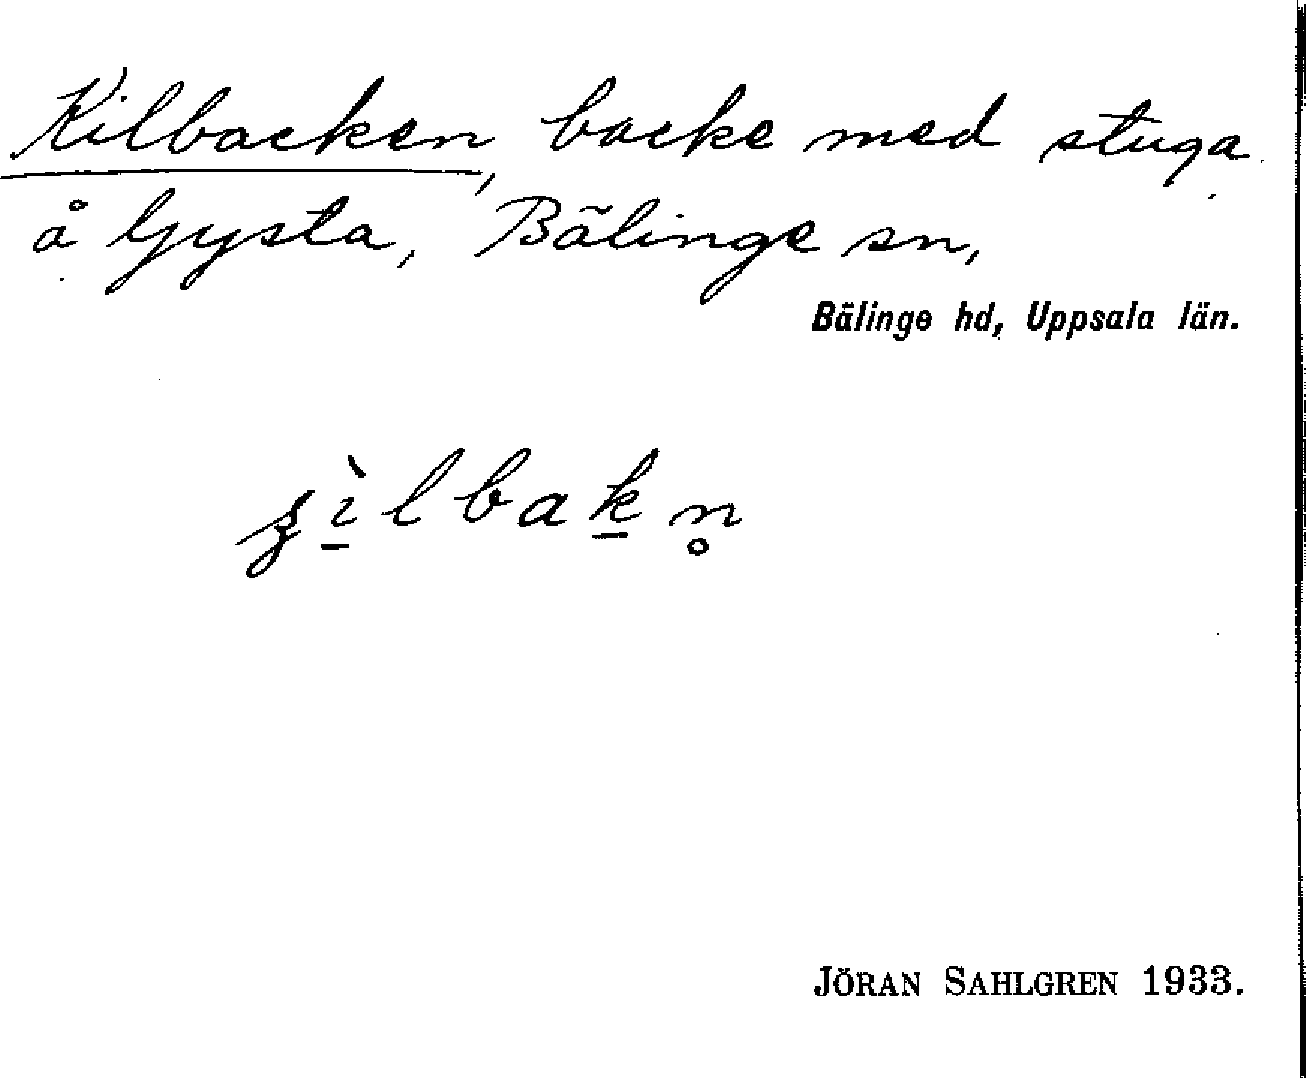 Kilbacken, backe med stuga
å Gysta, Bälinge sn,
Bälinge hd, Uppsala län.
JÖRAN SAHLGREN 1933.